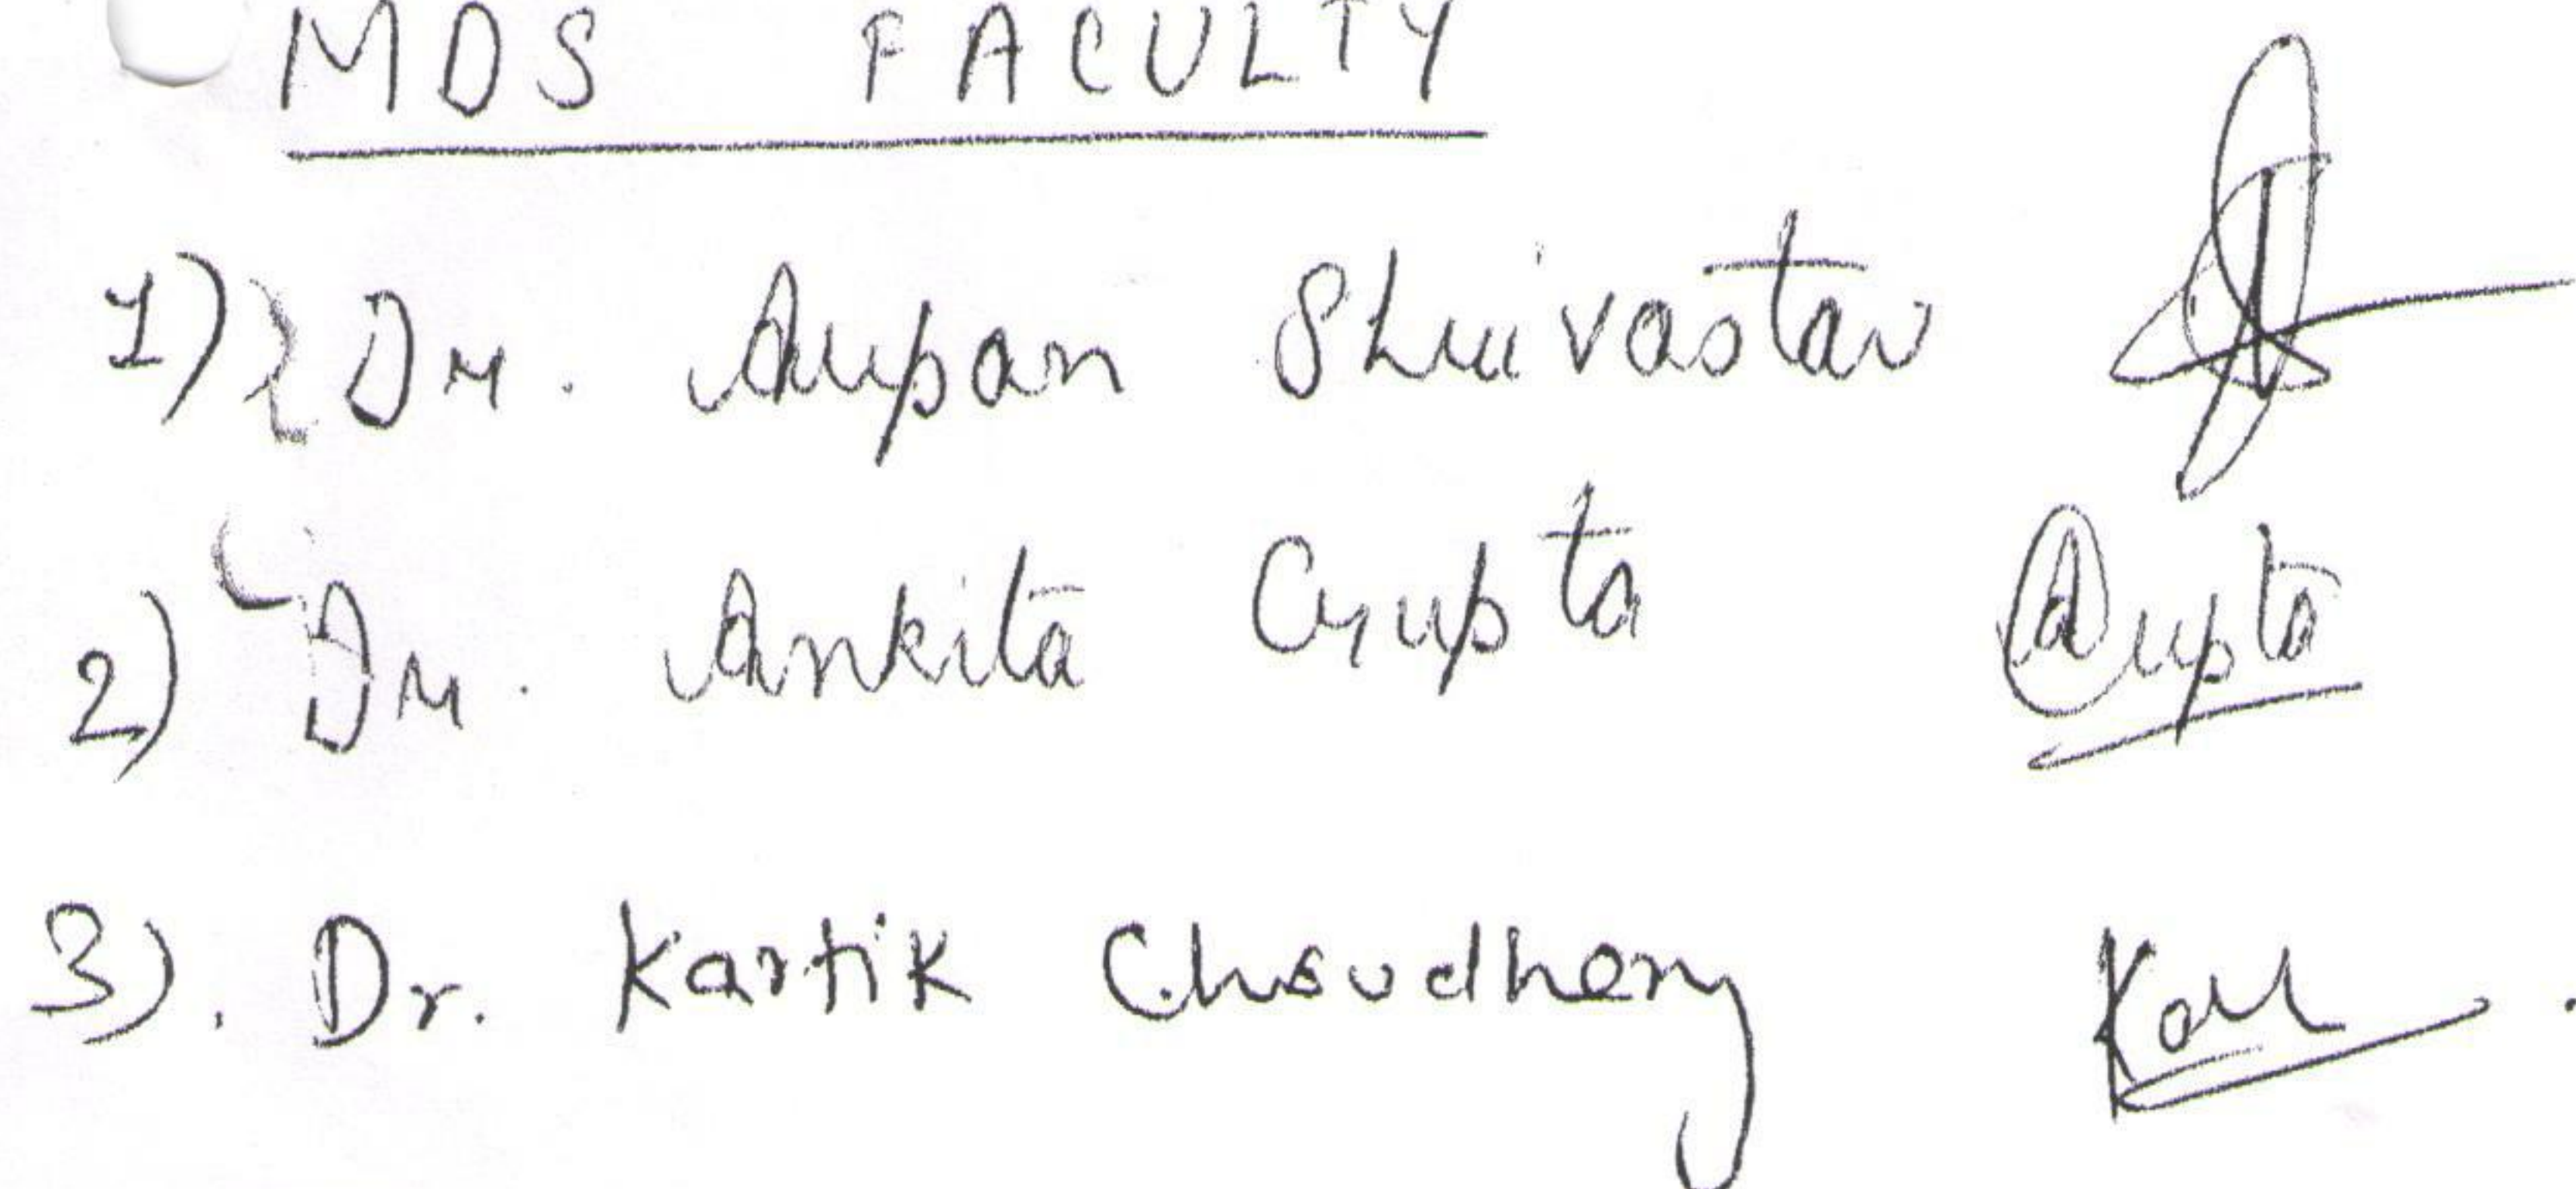 MDS FACULTY
1) Dr. Arpan Shrivastav
2) Dr. Ankita Gupta Gupta
3). Dr. Kartik Choudhery